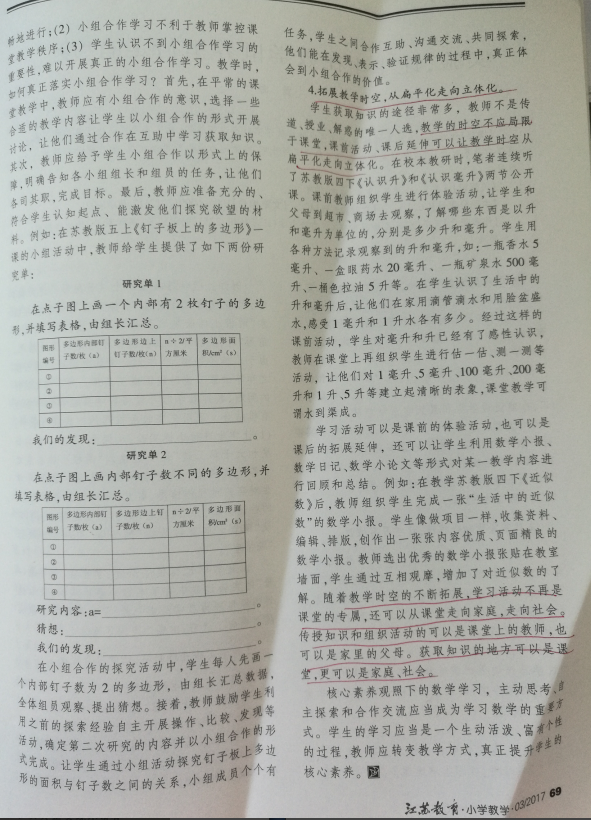 畅地进行；(2) 小组合作学习不利于教师掌控课
堂教学秩序；(3) 学生认识不到小组合作学习的
重要性,难以开展真正的小组合作学习。教学时,
如何真正落实小组合作学习？首先,在平常的课
堂教学中,教师应有小组合作的意识,选择一些
合适的教学内容让学生以小组合作的形式开展
讨论,让他们通过合作在互助中学习获取知识。
其次，教师应给予学生小组合作以形式上的保
障,明确告知各小组组长和组员的任务,让他们
各司其职,完成目标。最后,教师应准备充分的、
符合学生认知起点、能激发他们探究欲望的材
料。例如:在苏教版五上《钉子板上的多边形》一
课的小组活动中,教师给学生提供了如下两份研
究单:
研究单 1
在点子图上画一个内部有 2 枚钉子的多边
形,并填写表格,由组长汇总。
图形编号 多边形内部钉子数/枚（a） 多边形边上钉子数/枚(n) n÷2/平方厘米 多边形面积/cm²（s）
①
②
③
④
我们的发现:。
研究单 2
在点子图上画内部钉子数不同的多边形,并
填写表格,由组长汇总。
图形编号 多边形内部钉子数/枚（a） 多边形边上钉子数/枚（n） n÷2/平方厘米 多边形面积/cm²（s）
①
②
③
④
研究内容:a=。
猜想:。
我们的发现:。
在小组合作的探究活动中,学生每人先画一
个内部钉子数为 2 的多边形，由组长汇总数据,
全体组员观察、提出猜想。接着,教师鼓励学生利
用之前的探索经验自主开展操作、比较、发现等
活动,确定第二次研究的内容并以小组合作的形
式完成。让学生通过小组活动探究钉子板上多边
形的面积与钉子数之间的关系,小组成员个个有
任务,学生之间合作互助、沟通交流、共同探索,
他们能在发现、表示、验证规律的过程中,真正体
会到小组合作的价值。
4.拓展教学时空,从扁平化走向立体化。
学生获取知识的途径非常多，教师不是传
道、授业、解惑的唯一人选,教学的时空不应局限
于课堂,课前活动、课后延伸可以让教学时空从
扁平化走向立体化。在校本教研时,笔者连续听
了苏教版四下《认识升》和《认识毫升》两节公开
课。课前教师组织学生进行体验活动,让学生和
父母到超市、商场去观察,了解哪些东西是以升
和毫升为单位的,分别是多少升和毫升。学生用
各种方法记录观察到的升和毫升,如:一瓶香水 5
毫升、一盒眼药水 20 毫升、一瓶矿泉水 500 毫
升、一桶色拉油 5 升等。在学生认识了生活中的
升和毫升后,让他们在家用滴管滴水和用脸盆盛
水,感受 1 毫升和 1 升水各有多少。经过这样的
课前活动，学生对毫升和升已经有了感性认识,
教师在课堂上再组织学生进行估一估、测一测等
活动，让他们对 1 毫升、5 毫升、100 毫升、200 毫
升和 1 升、5 升等建立起清晰的表象,课堂教学可
谓水到渠成。
学习活动可以是课前的体验活动,也可以是
课后的拓展延伸，还可以让学生利用数学小报、
数学日记、数学小论文等形式对某一教学内容进
行回顾和总结。例如:在教学苏教版四下《近似
数》后,教师组织学生完成一张“生活中的近似
数”的数学小报。学生像做项目一样,收集资料、
编辑、排版,创作出一张张内容优质、页面精良的
数学小报。教师选出优秀的数学小报张贴在教室
墙面,学生通过互相观摩,增加了对近似数的了
解。随着教学时空的不断拓展,学习活动不再是
课堂的专属,还可以从课堂走向家庭,走向社会。
传授知识和组织活动的可以是课堂上的教师,也
可以是家里的父母。获取知识的地方可以是课
堂,更可以是家庭、社会。
核心素养观照下的数学学习，主动思考、自
主探索和合作交流应当成为学习数学的重要方
式。学生的学习应当是一个生动活泼、富有个性
的过程,教师应转变教学方式,真正提升学生的
核心素养。
江苏教育·小学教学·03/2017 69